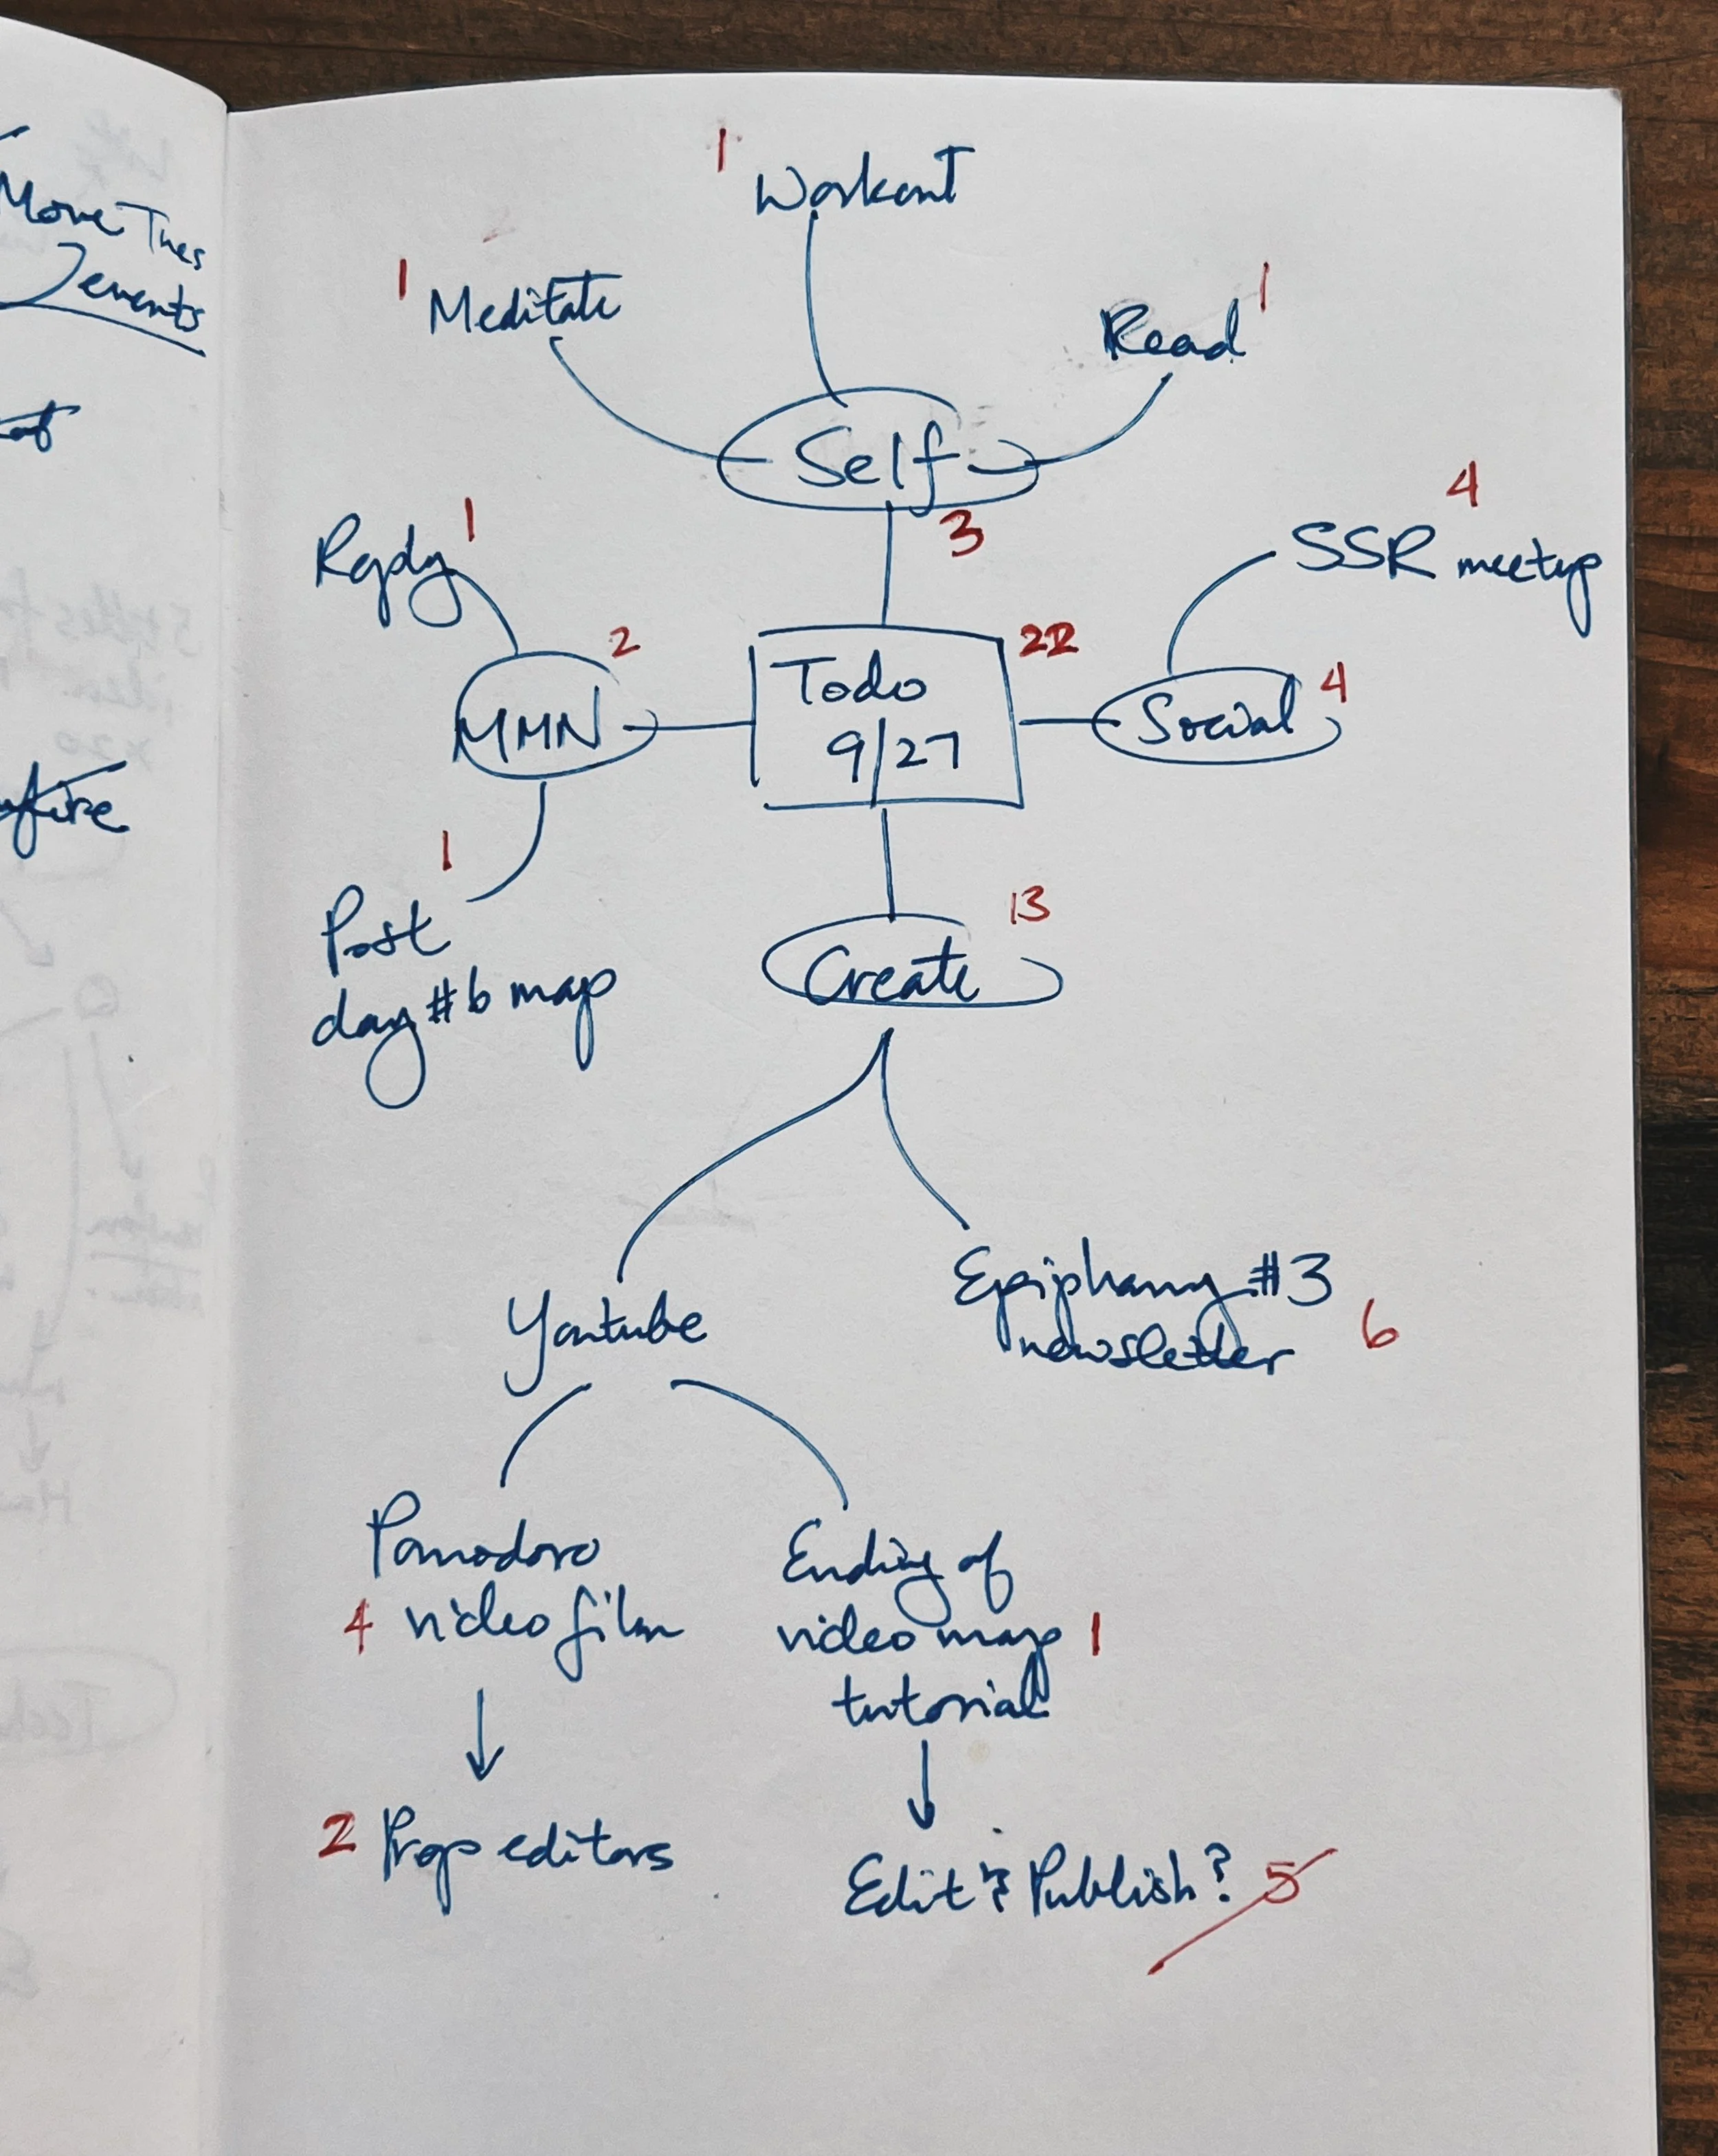 Move Tues
events
1 Workout
1 Meditate
Read 1
Self
3
Reply 1
SSR meetup 4
MMN 2
Todo 22
9/27
Social 4
1
Post
day #6 map
Create 13
Youtube
Epiphany #3
newsletter 6
Pomodoro
4 video film
Ending of
video map 1
tutorial
2 Prep editors
Edit & Publish? 5